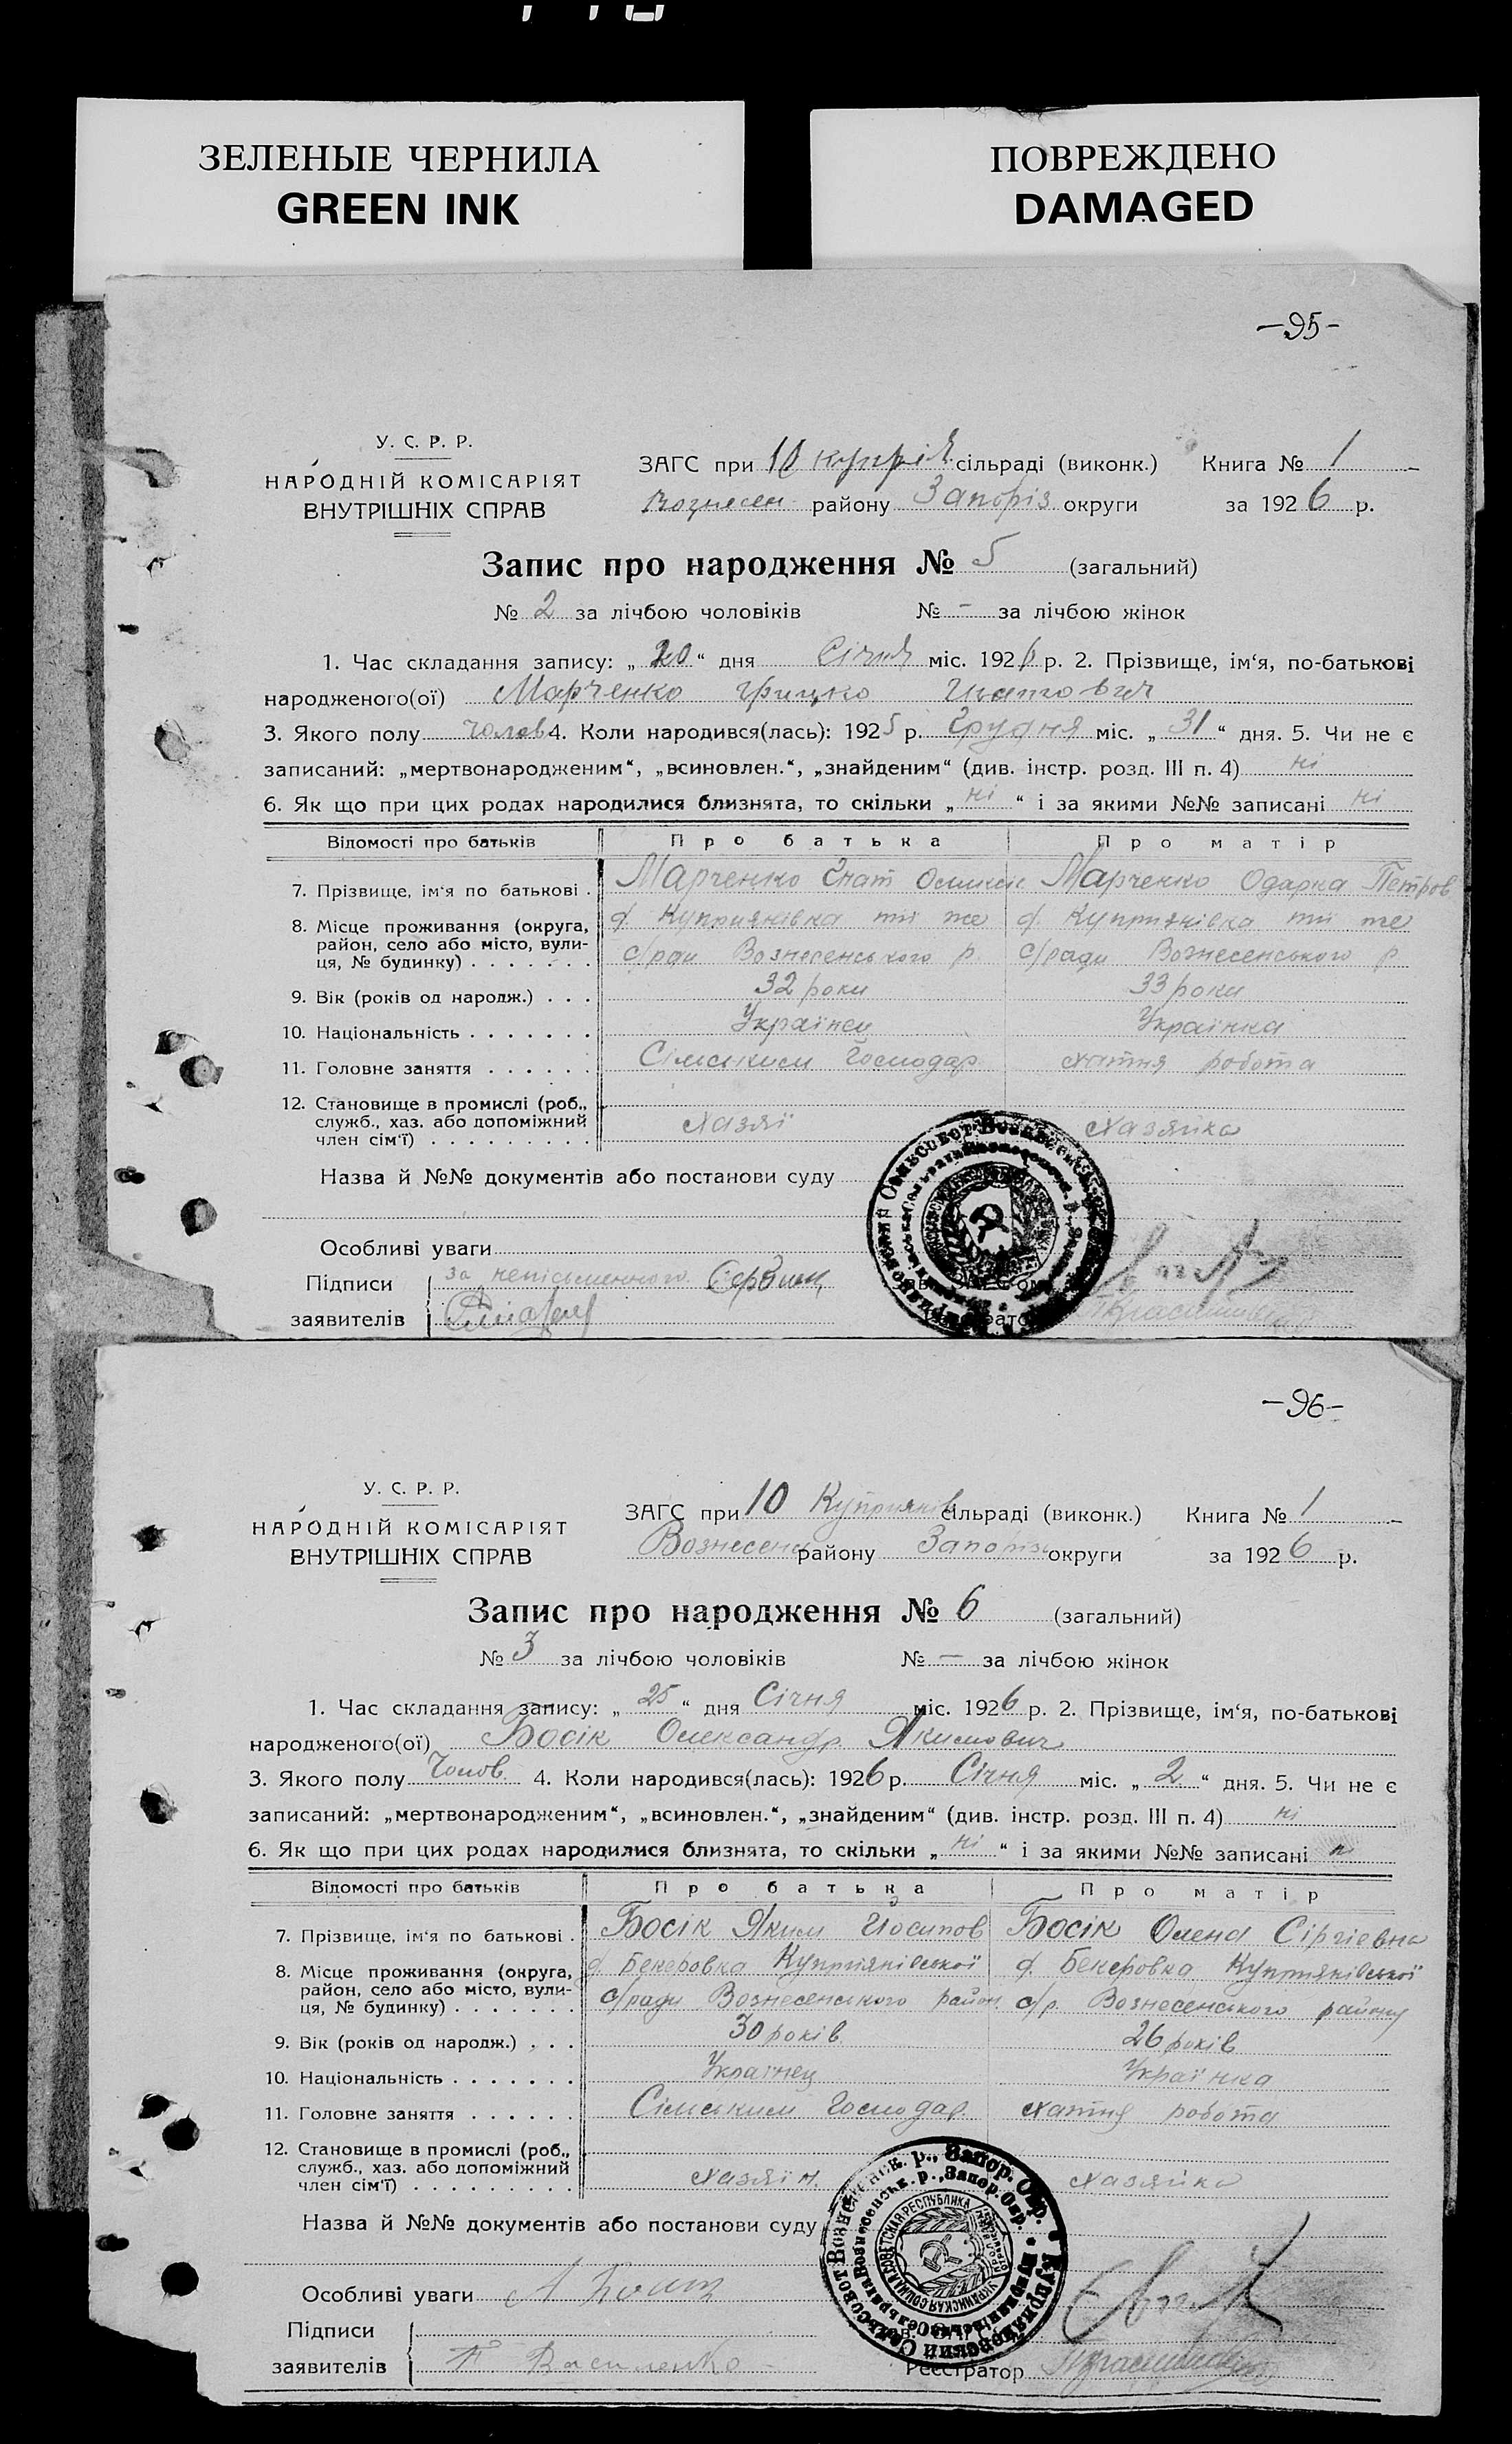 ЗЕЛЕНЫЕ ЧЕРНИЛА
GREEN INK
ПОВРЕЖДЕНО
DAMAGED
—95—
У. С. Р. Р.
НАРОДНІЙ КОМІСАРІЯТ
ВНУТРІШНІХ СПРАВ
ЗАГС при 10 купрія сільраді (виконк.) Книга № 1
Вознесен району Запоріз округи за 1926 р.
Запис про народження № 5 (загальний)
№ 2 за лічбою чоловіків № - за лічбою жінок
1. Час складання запису: „ 20 “ дня Січня міс. 1926 р. 2. Прізвище, ім‘я, по-батькові
народженого(ої) Марченко Грицко Гнатович
3. Якого полу чолов 4. Коли народився(лась): 1925 р. Грудня міс. „ 31 “ дня. 5. Чи не є
записаний: „мертвонародженим“, „всиновлен.“, „знайденим“ (див. інстр. розд. III п. 4) ні
6. Як що при цих родах народилися близнята, то скільки „ ні “ і за якими №№ записані ні
Відомості про батьків Про батька Про матір
7. Прізвище, ім‘я по батькові . Марченко Гнат Марченко Одарка Петров
8. Місце проживання (округа, район, село або місто, вулиця, № будинку) . . . . . . . д. Куприянівка тії же д. Куприянівка тії же
с/ради Вознесенського р. с/ради Вознесенського р
9. Вік (років од народж.) . . . 32 роки 33 роки
10. Національність . . . . . . . Українец Українка
11. Головне заняття . . . . . . Сільським Господар хатня робота
12. Становище в промислі (роб., служб., хаз. або допоміжний член сім‘ї) . . . . . . . . . Хазяї Хазяйка
Назва й №№ документів або постанови суду
Особливі уваги
Підписи за неписьменного
заявителів
—96—
У. С. Р. Р.
НАРОДНІЙ КОМІСАРІЯТ
ВНУТРІШНІХ СПРАВ
ЗАГС при 10 Куприянів сільраді (виконк.) Книга № 1
Вознесенс району Запорізь округи за 1926 р.
Запис про народження № 6 (загальний)
№ 3 за лічбою чоловіків № — за лічбою жінок
1. Час складання запису: „ 25 “ дня Січня міс. 1926 р. 2. Прізвище, ім‘я, по-батькові
народженого(ої) Босік Олександр Якимович
3. Якого полу Чолов 4. Коли народився(лась): 1926 р. Січня міс. „ 2 “ дня. 5. Чи не є
записаний: „мертвонародженим“, „всиновлен.“, „знайденим“ (див. інстр. розд. III п. 4) ні
6. Як що при цих родах народилися близнята, то скільки „ ні “ і за якими №№ записані
Відомості про батьків Про батька Про матір
7. Прізвище, ім‘я по батькові . Босік Яким Йосипов Босік Олена Сіргіевна
8. Місце проживання (округа, район, село або місто, вулиця, № будинку) . . . . . . . д. Бекеровка Куприянівської д. Бекеровка Куприянівської
с/ради Вознесенського район с/р. Вознесенського району
9. Вік (років од народж.) . . . 30 років 26 років
10. Національність . . . . . . . Українец Українка
11. Головне заняття . . . . . . Сільським Господар хатня робота
12. Становище в промислі (роб., служб., хаз. або допоміжний член сім‘ї) . . . . . . . . . Хазяїн. Хазяйка
Назва й №№ документів або постанови суду
Особливі уваги
Підписи
заявителів Василенко
Реєстратор